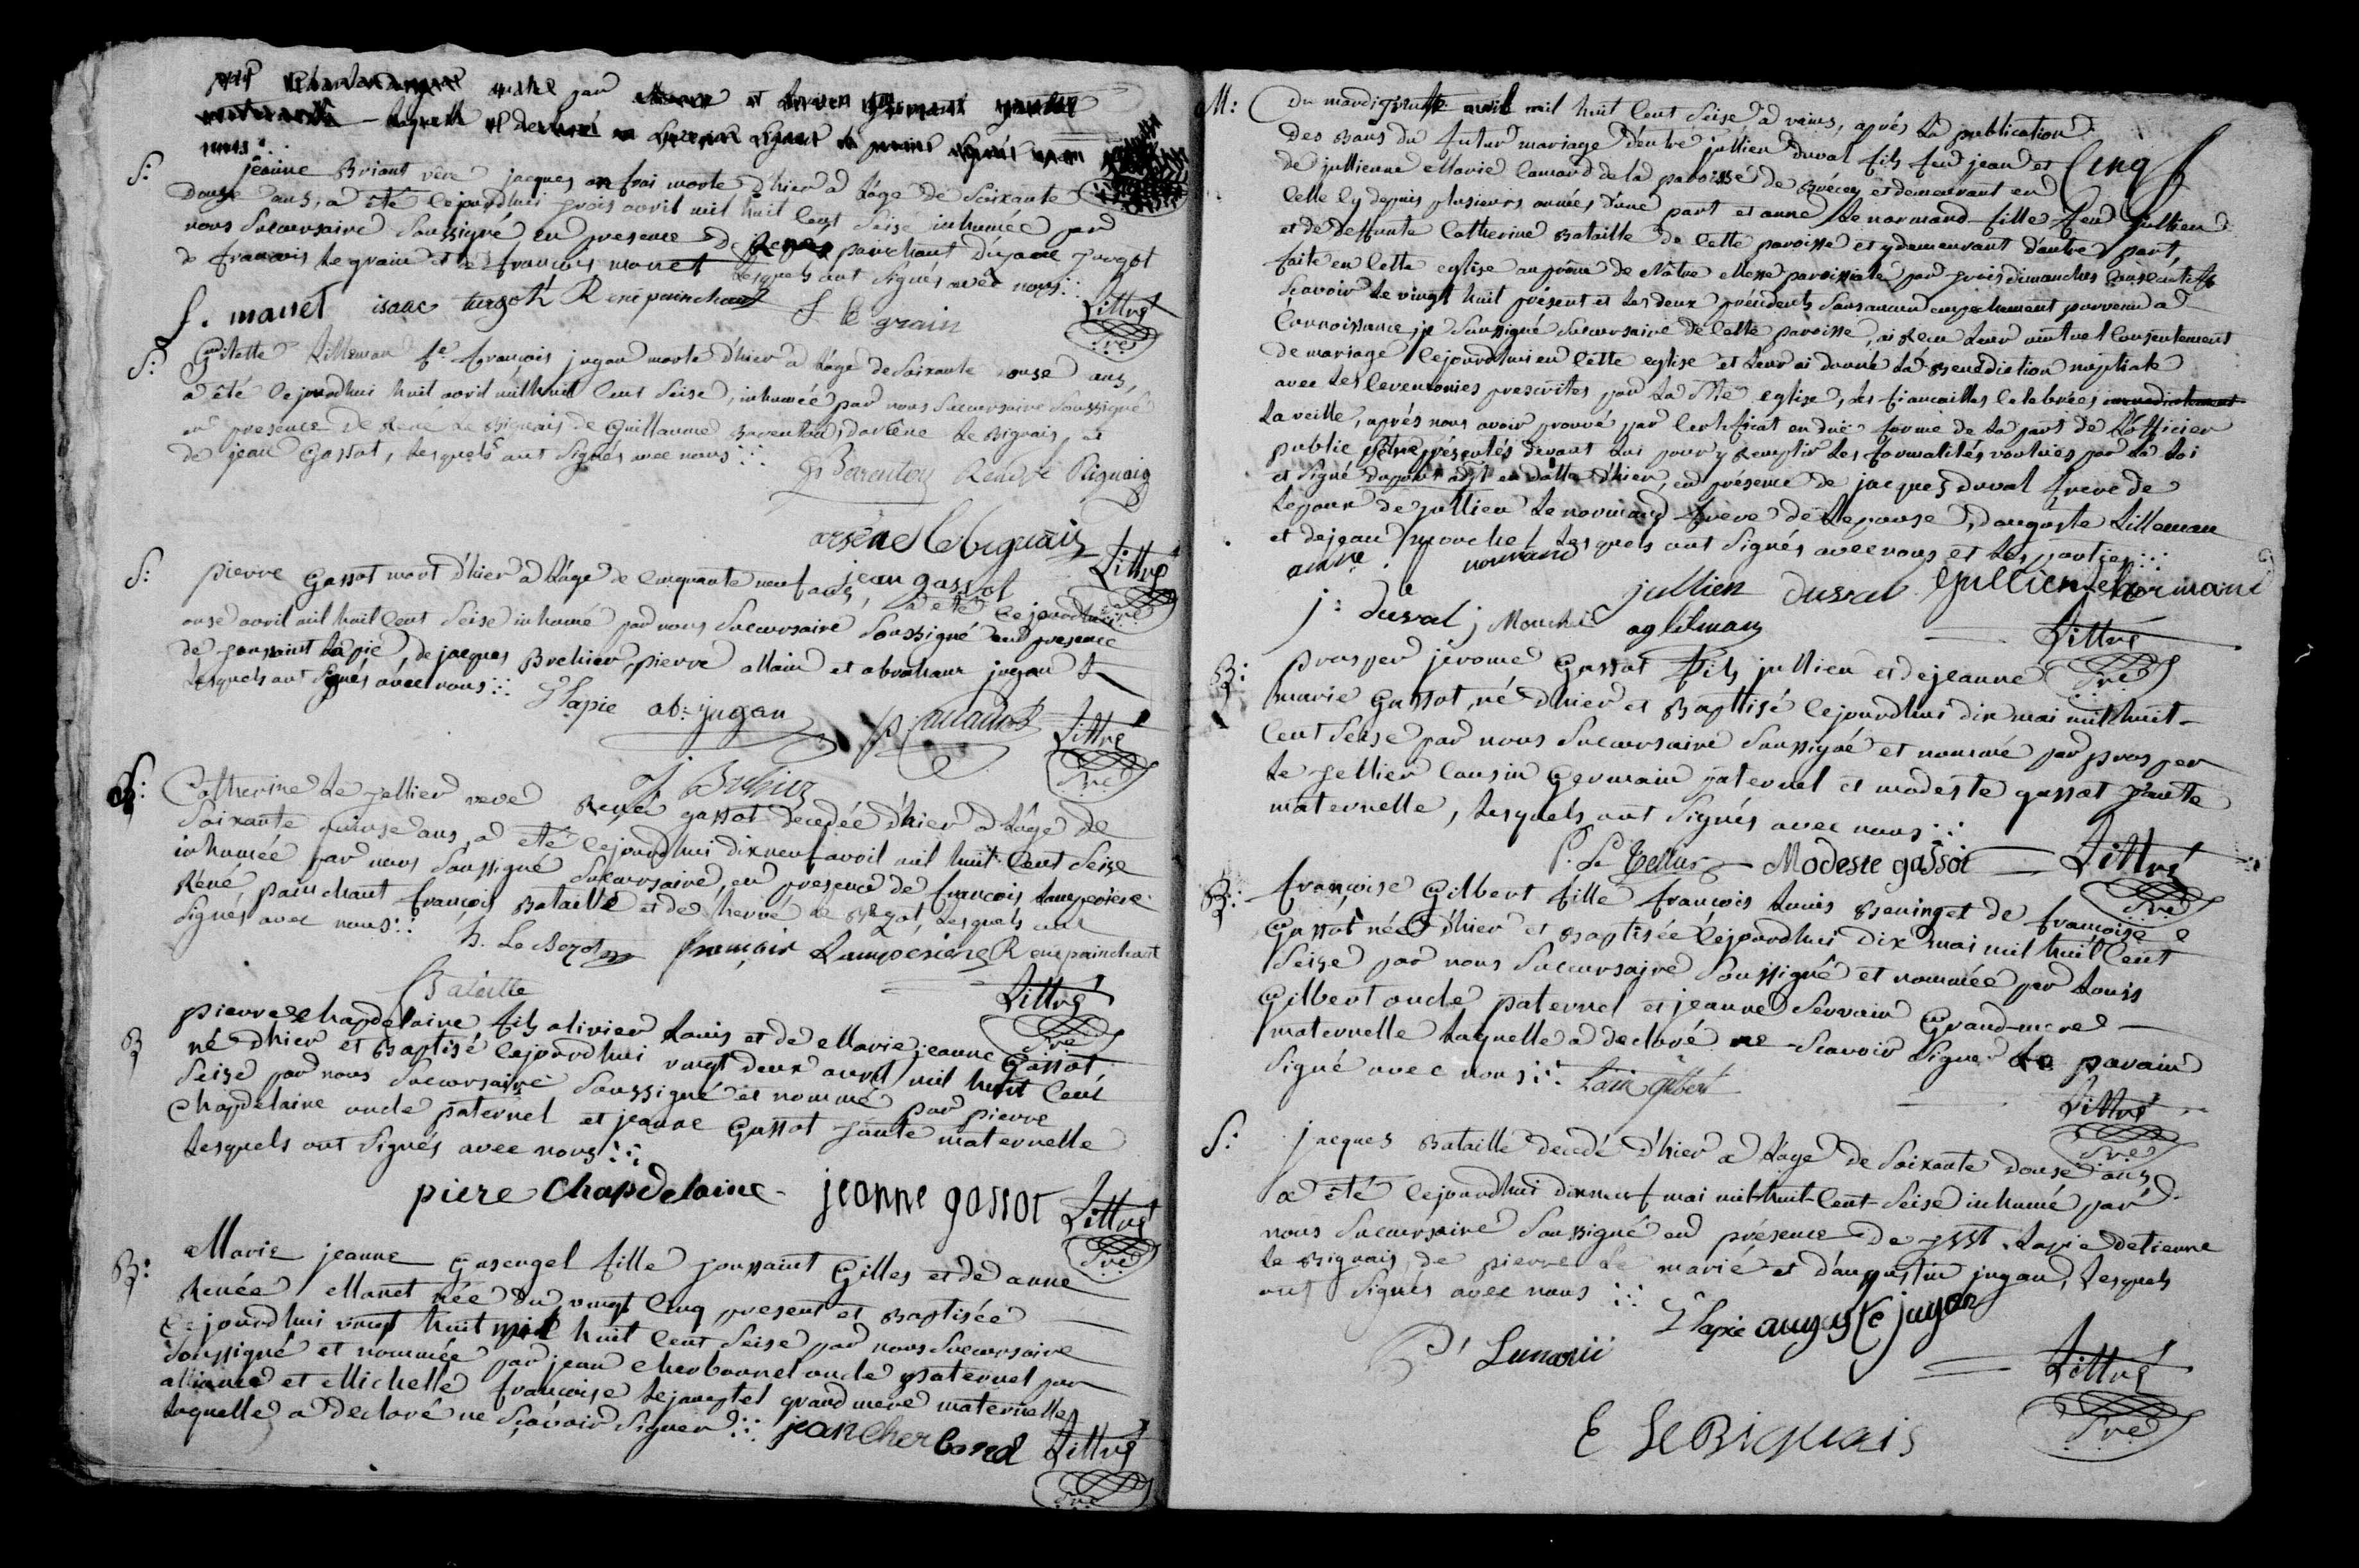 nous
S: jeanne Briant veve jacques onfrai morte d'hier a l'age de soixante
douze ans, a été cejourdhui trois avril mil huit cent seise inhumée par
nous succursaire soussigné en presence de René painchaut d'isaac turgot
de francois le grain et de françois manet lesquels ont signés avec nous
f. manet isaac turgot René painchaut f le grain Littré
pre
S: Gilette Litleman fe françois jugan morte d'hier a l'age de soixante onse ans,
a été cejourdhui huit avril mil huit cent seise, inhumée par nous succursaire soussigné
en presence de René Le Bignais de Guillaume Barenton, d'arsène Le Bignais, et
de jean Gassot, lesquels ont signés avec nous
G Barenton René le Bignais
arsène le bignais
jean gassot Littré
S: pierre Gassot mort d'hier a l'age de cinquante neuf ans, a été cejourdhui
onse avril mil huit cent seise inhumé par nous succursaire soussigné en presence
de toussaint Lapie, de jacques Brehier, pierre allain et abraham jugan
lesquels ont signés avec nous
T Lapie ab: jugan p allain Littré
pre
J Brehier
S: Catherine Le tellier veve René gassot decedée d'hier a l'age de
soixante quinse ans, a été cejourdhui dix neuf avril mil huit cent seise
inhumée par nous soussigné succursaire, en presence de francois Lamperiere
René painchaut françois Bataille et de hervé le Bezot, lesquels ont
signés avec nous
h. Le Bezot francois Lamperiere René painchaut
Bataille Littré
pre
B pierre chapdelaine fils olivier Louis et de Marie jeanne Gassot,
né d'hier et Baptisé cejourdhui vingt deux avril mil huit cent
seise par nous succursaire soussigné et nommé par pierre
Chapdelaine oncle paternel et jeanne Gassot tante maternelle
lesquels ont signés avec nous
piere Chapdelaine jeanne gassot Littré
pre
B: Marie jeanne Gasengel fille toussaint Gilles et de anne
Renée Manet née du vingt cinq present et Baptisée
cejourdhui vingt huit huit cent seise par nous succursaire
soussigné et nommée par jean cherbonnel oncle paternel par
alliance et Michelle françoise grand mere maternelle
laquelle a declaré ne sçavoir signer jean cherbonel Littré
pre
M: Du mardi trente mil huit cent seise a, après la publication
des Bans du futur mariage d'entre jullien duval fils feu jean et Cinq
de jullienne Marie Lamard de la paroisse de Brécey et demeurant en
celle cy depuis plusieurs années d'une part et anne Le normand fille feu jullien
et de deffunte Catherine Bataille de cette paroisse et y demeurant d'autre part,
faite en cette eglise au prône de Nôtre Messe paroissiale par trois dimanches consecutifs
scavoir le vingt huit présent et les deux précédents sans aucun empechement parvenu a
Connoissance, je soussigné succursaire de cette paroisse, ai reçu leur mutuel consentement
de mariage cejourdhui en cette eglise et leur ai donné la Benediction nuptiale
avec les ceremonies prescrites par la Ste eglise, les fiancailles celebrées
la veille, après nous avoir prouvé par certificat en duë forme de la part de l'officier
public s'être présentés devant lui pour y remplir les formalités voulues par la loi
et signé en datte d'hier, en présence de jacques duval frere de
l'epoux de jullien Le normand frere de l'epouse, d'auguste Litleman
et de jean mouchel lesquels ont signés avec nous et les parties
anne le normand jullien duval jullien le normand
j: duval j Mouchel ag lilman Littré
pre
B: prosper jérome Gassot fils jullien et de jeanne
marie Gassot, né d'hier et Baptisé cejourdhui dix mai mil huit
cent seise par nous succursaire soussigné et nommé par prosper
Le tellier cousin Germain paternel et modeste gassot tante
maternelle, lesquels ont signés avec nous
P. Le Tellier Modeste gassot Littré
pre
B: françoise Gilbert fille françois Louis Bening et de françoise
Gassot née d'hier et Baptisée cejourdhui dix mai mil huit cent
seise par nous succursaire soussigné et nommée par Louis
Gilbert oncle paternel et jeanne Servain Grand-mere
maternelle laquelle a declaré ne scavoir signer Le parain
signé avec nous Louis gilbert
Littré
pre
S: jacques Bataille decedé d'hier a l'age de soixante douse ans
a été cejourdhui dix neuf mai mil huit cent seise inhumé par
nous succursaire soussigné en présence de tsst. Lapie d'etienne
le Bignais, de pierre Le marié et d'augustin jugan, lesquels
ont signés avec nous
T Lapie auguste jugan
P Lemarié Littré
pre
E Le Bignais